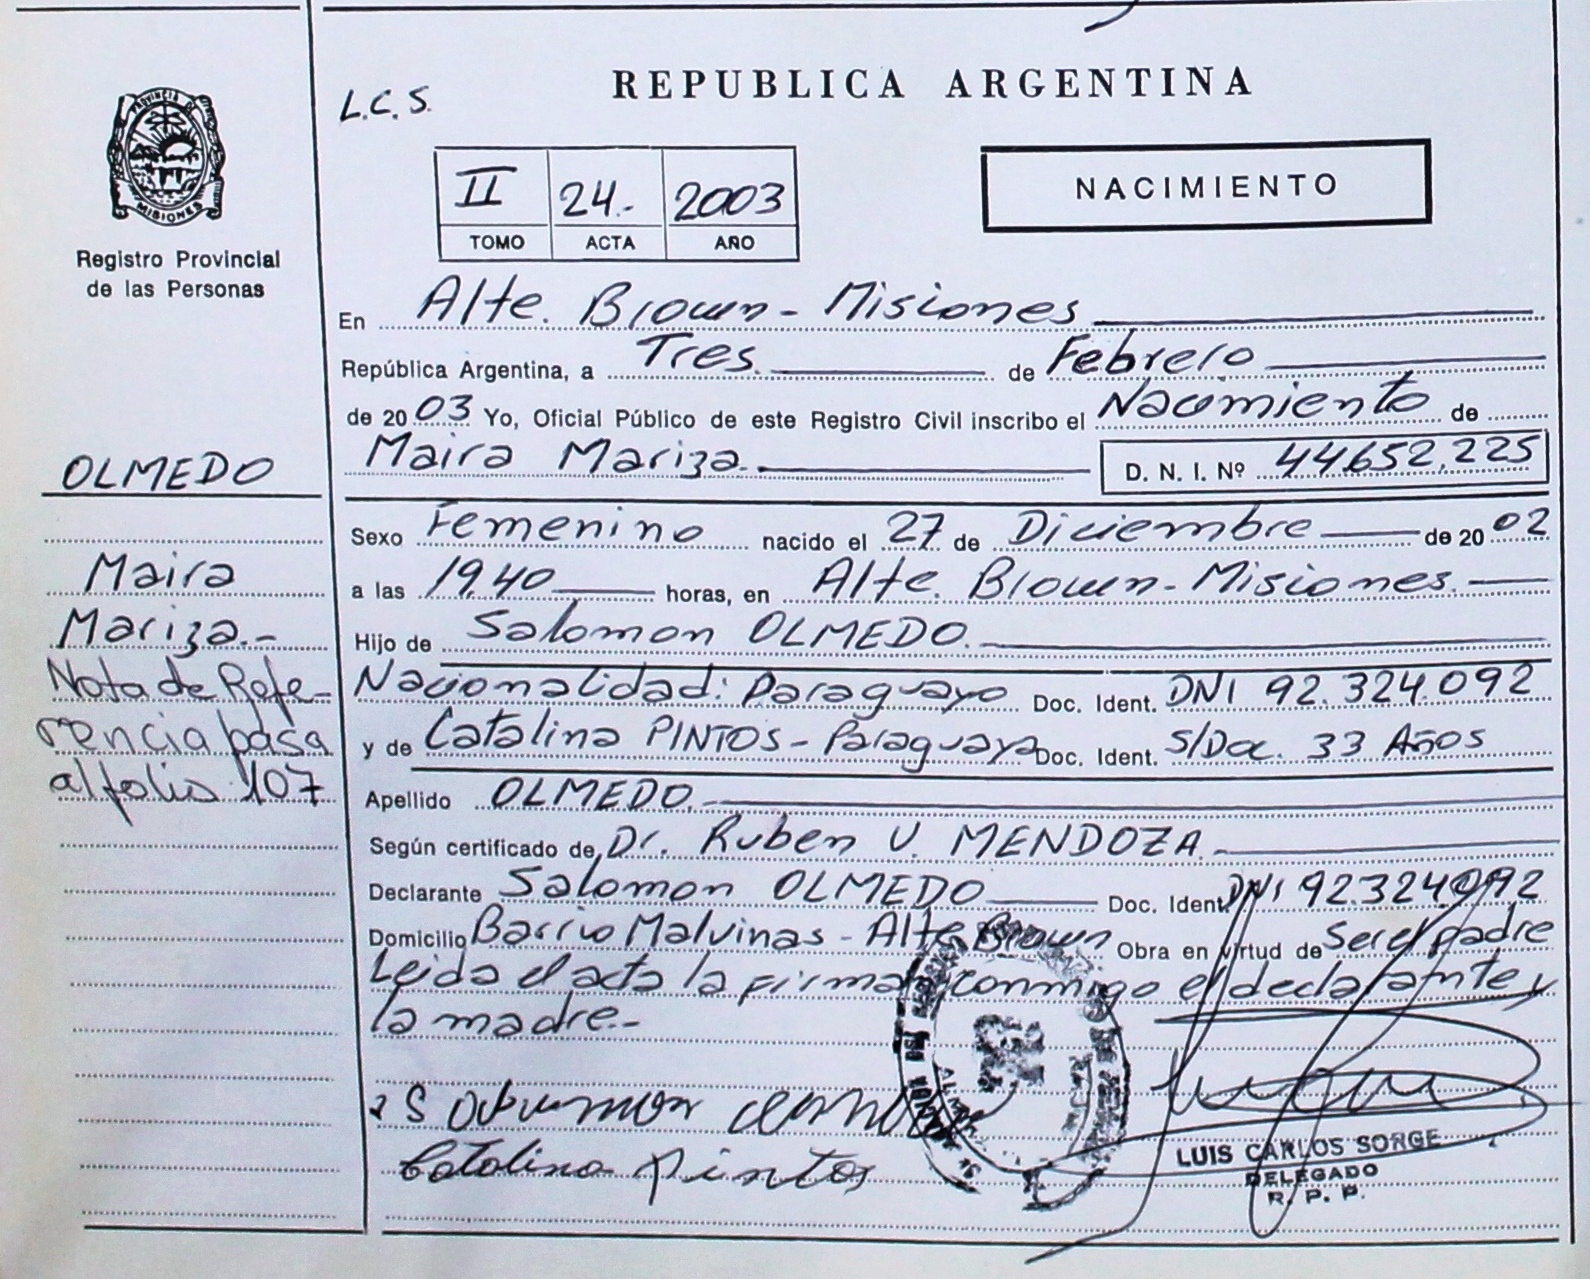 REPUBLICA ARGENTINA
L.C.S.
PROVINCIA DE
MISIONES
Registro Provincial
de las Personas
II 24.- 2003
TOMO ACTA AÑO
NACIMIENTO
En Alte. Brown - Misiones
República Argentina, a Tres. de Febrero
de 20 03 Yo, Oficial Público de este Registro Civil inscribo el Nacimiento de
Maira Mariza. D. N. I. Nº 44652.225
OLMEDO
Maira
Mariza.-
Nota de Refe-
rencia pasa
al folio 107
Sexo Femenino nacido el 27 de Diciembre de 20 02
a las 19,40 horas, en Alte. Brown - Misiones.
Hijo de Salomon OLMEDO.
Nacionalidad: Paraguayo Doc. Ident. DNI 92.324.092
y de Catalina PINTOS - Paraguaya Doc. Ident. S/Doc. 33 Años
Apellido OLMEDO.
Según certificado de Dr. Ruben V. MENDOZA.
Declarante Salomon OLMEDO Doc. Ident. DNI 92.324.092
Domicilio Barrio Malvinas - Alte Brown Obra en virtud de Ser el padre
Leida el acta la firman conmigo el declarante y
la madre.-
Catalina Pintos
LUIS CARLOS SORGE
DELEGADO
R. P. P.